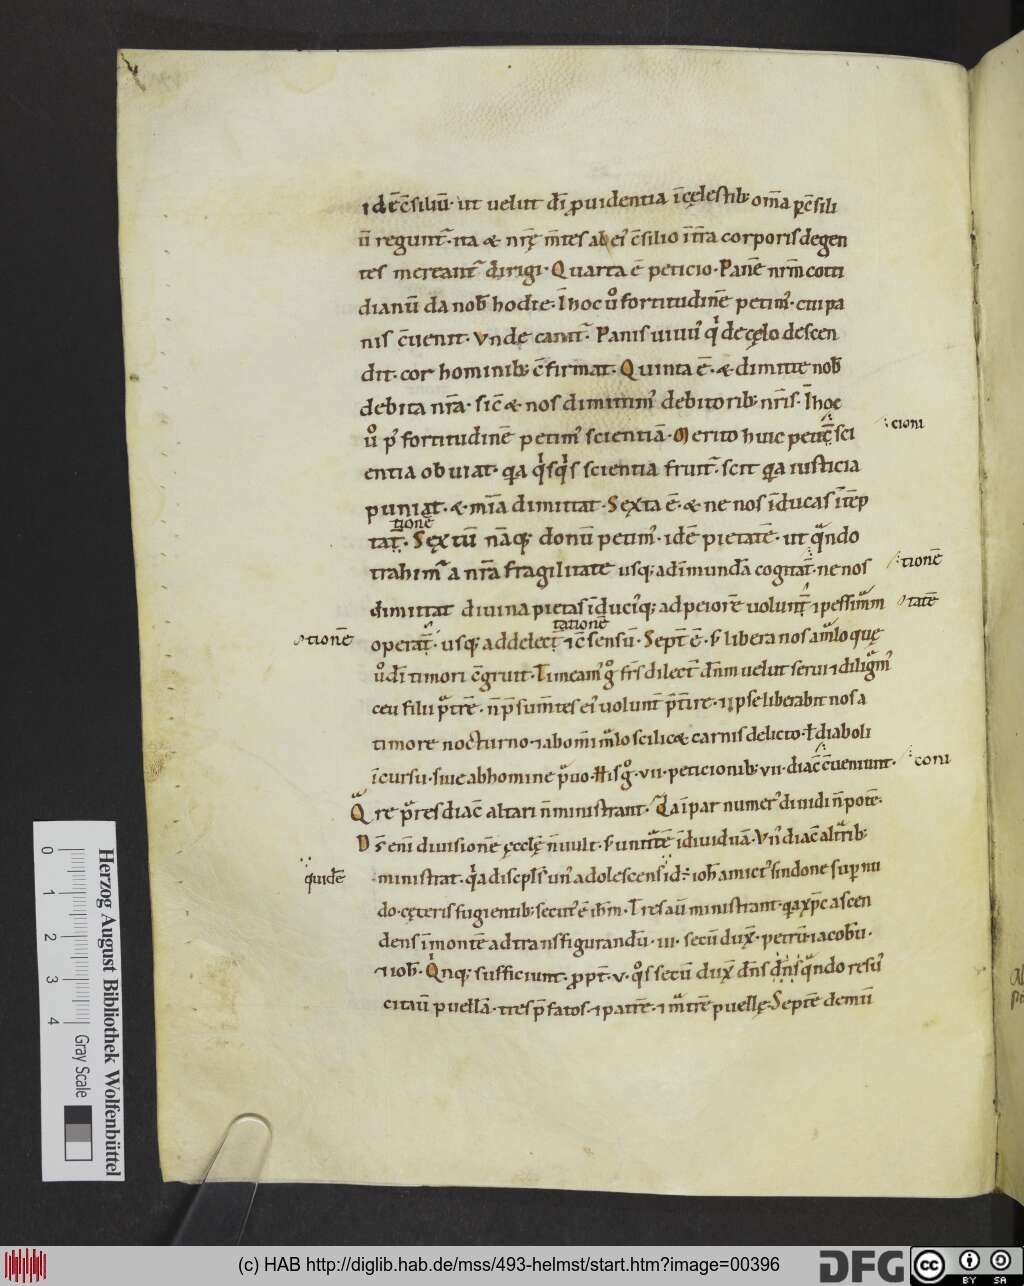 idē c̄siliū · ut uelut dī ꝓuidentia ī cęlestib; om̄a ꝑ c̄sili
ū regunt᷑ · ita & nrę̄ m̄tes ab ei᷒ c̄silio īt̄ra corporis degen
tes mereant᷑ dirigi · Quarta ē peticio · Panē nrm̄ coti
dianū da nob̄ hodie · Ī hoc ů fortitudinē petim᷒ · cui pa
nis c̄uenit · Vnde canit᷑ · Panis uiuu᷒ qͥ de cęlo descen
dit · cor hominib; c̄firmat · Quinta ē · & dimitte nob̄
debita nr̄a · sic̄ & nos dimittim᷒ debitorib; nr̄is · Ī hoc
ů p᷒ fortitudinē petim᷒ scientiā · Merito huic petic̄ sci
cioni
entia obuiat · qͣa qͥsqͥs scientia fruit᷑ · scit qͣa iusticia
puniat · & mīa dimittat · Sexta ē · & ne nos īducas ītēp
tionē
tat̄ · Sextū nāq; donū petim᷒ · idē pietatē · ut qͣndo
trahim᷒ a nr̄a fragilitate usq; ad īmundā cogitat̄ · ne nos
tionē
dimittat diuina pietas īduciq; ad peiorē uolunt̄ ⁊ pessimͣm
tatē
tationē
operat̄ · usq; ad delect̄ ⁊ c̄sensū · Sept̄ ē · s; libera nos a mͣlo quę
tionē
ů dī timori c̄gruit · Timeam᷒ gͦ frs̄ dilect̄ dn̄m uelut serui ⁊ diligͣm᷒
ceu filii pͣtrē · n̄ p̄sum̄tes ei᷒ uolunt̄ p̄t̄ire · ⁊ ipse liberabit nos a
timore nocturno ⁊ ab om̄i mͣlo scilic& carnis delicto · ł diaboli
īcursu · siue ab homine pͣuo · His gͦ · vii · peticionib; vii · diac̄ c̄ueniunt ·
coni
Qͣre pͣres diac̄ altari n̄ ministrant · Qͣa īpar numer᷒ diuidi n̄ potē ·
Ds̄ eni divisionē ęcclę̄ n̄ uult · s; unitͣtē īdiuiduā · Vn᷒ diac̄ altͣrib;
ministrat · qͣa discpls̄ un᷒ adolescens id ÷ ioh̄ amict᷒ sindone sup nu
quidē
do · cęteris fugientib; secut᷒ ē ihm̄ · Tres aū ministrant · qͣa xp̄c ascen
dens ī montē ad transfigurandū · iii · secū dux̄ · petrū · iacobū ·
⁊ ioh̄ · Qͥnq; sufficiunt · ꝓpt̄ · v · qͦs secū dux̄ dn̄s dn̄s qͣndo resu᷒
citaū puellā · tres p̄fatos · ⁊ patrē · ⁊ mͣtrē puellę · Septē demū
Herzog August Bibliothek Wolfenbüttel
0 1 2 3 4 Gray Scale
(c) HAB http://diglib.hab.de/mss/493-helmst/start.htm?image=00396
DFG
cc BY SA